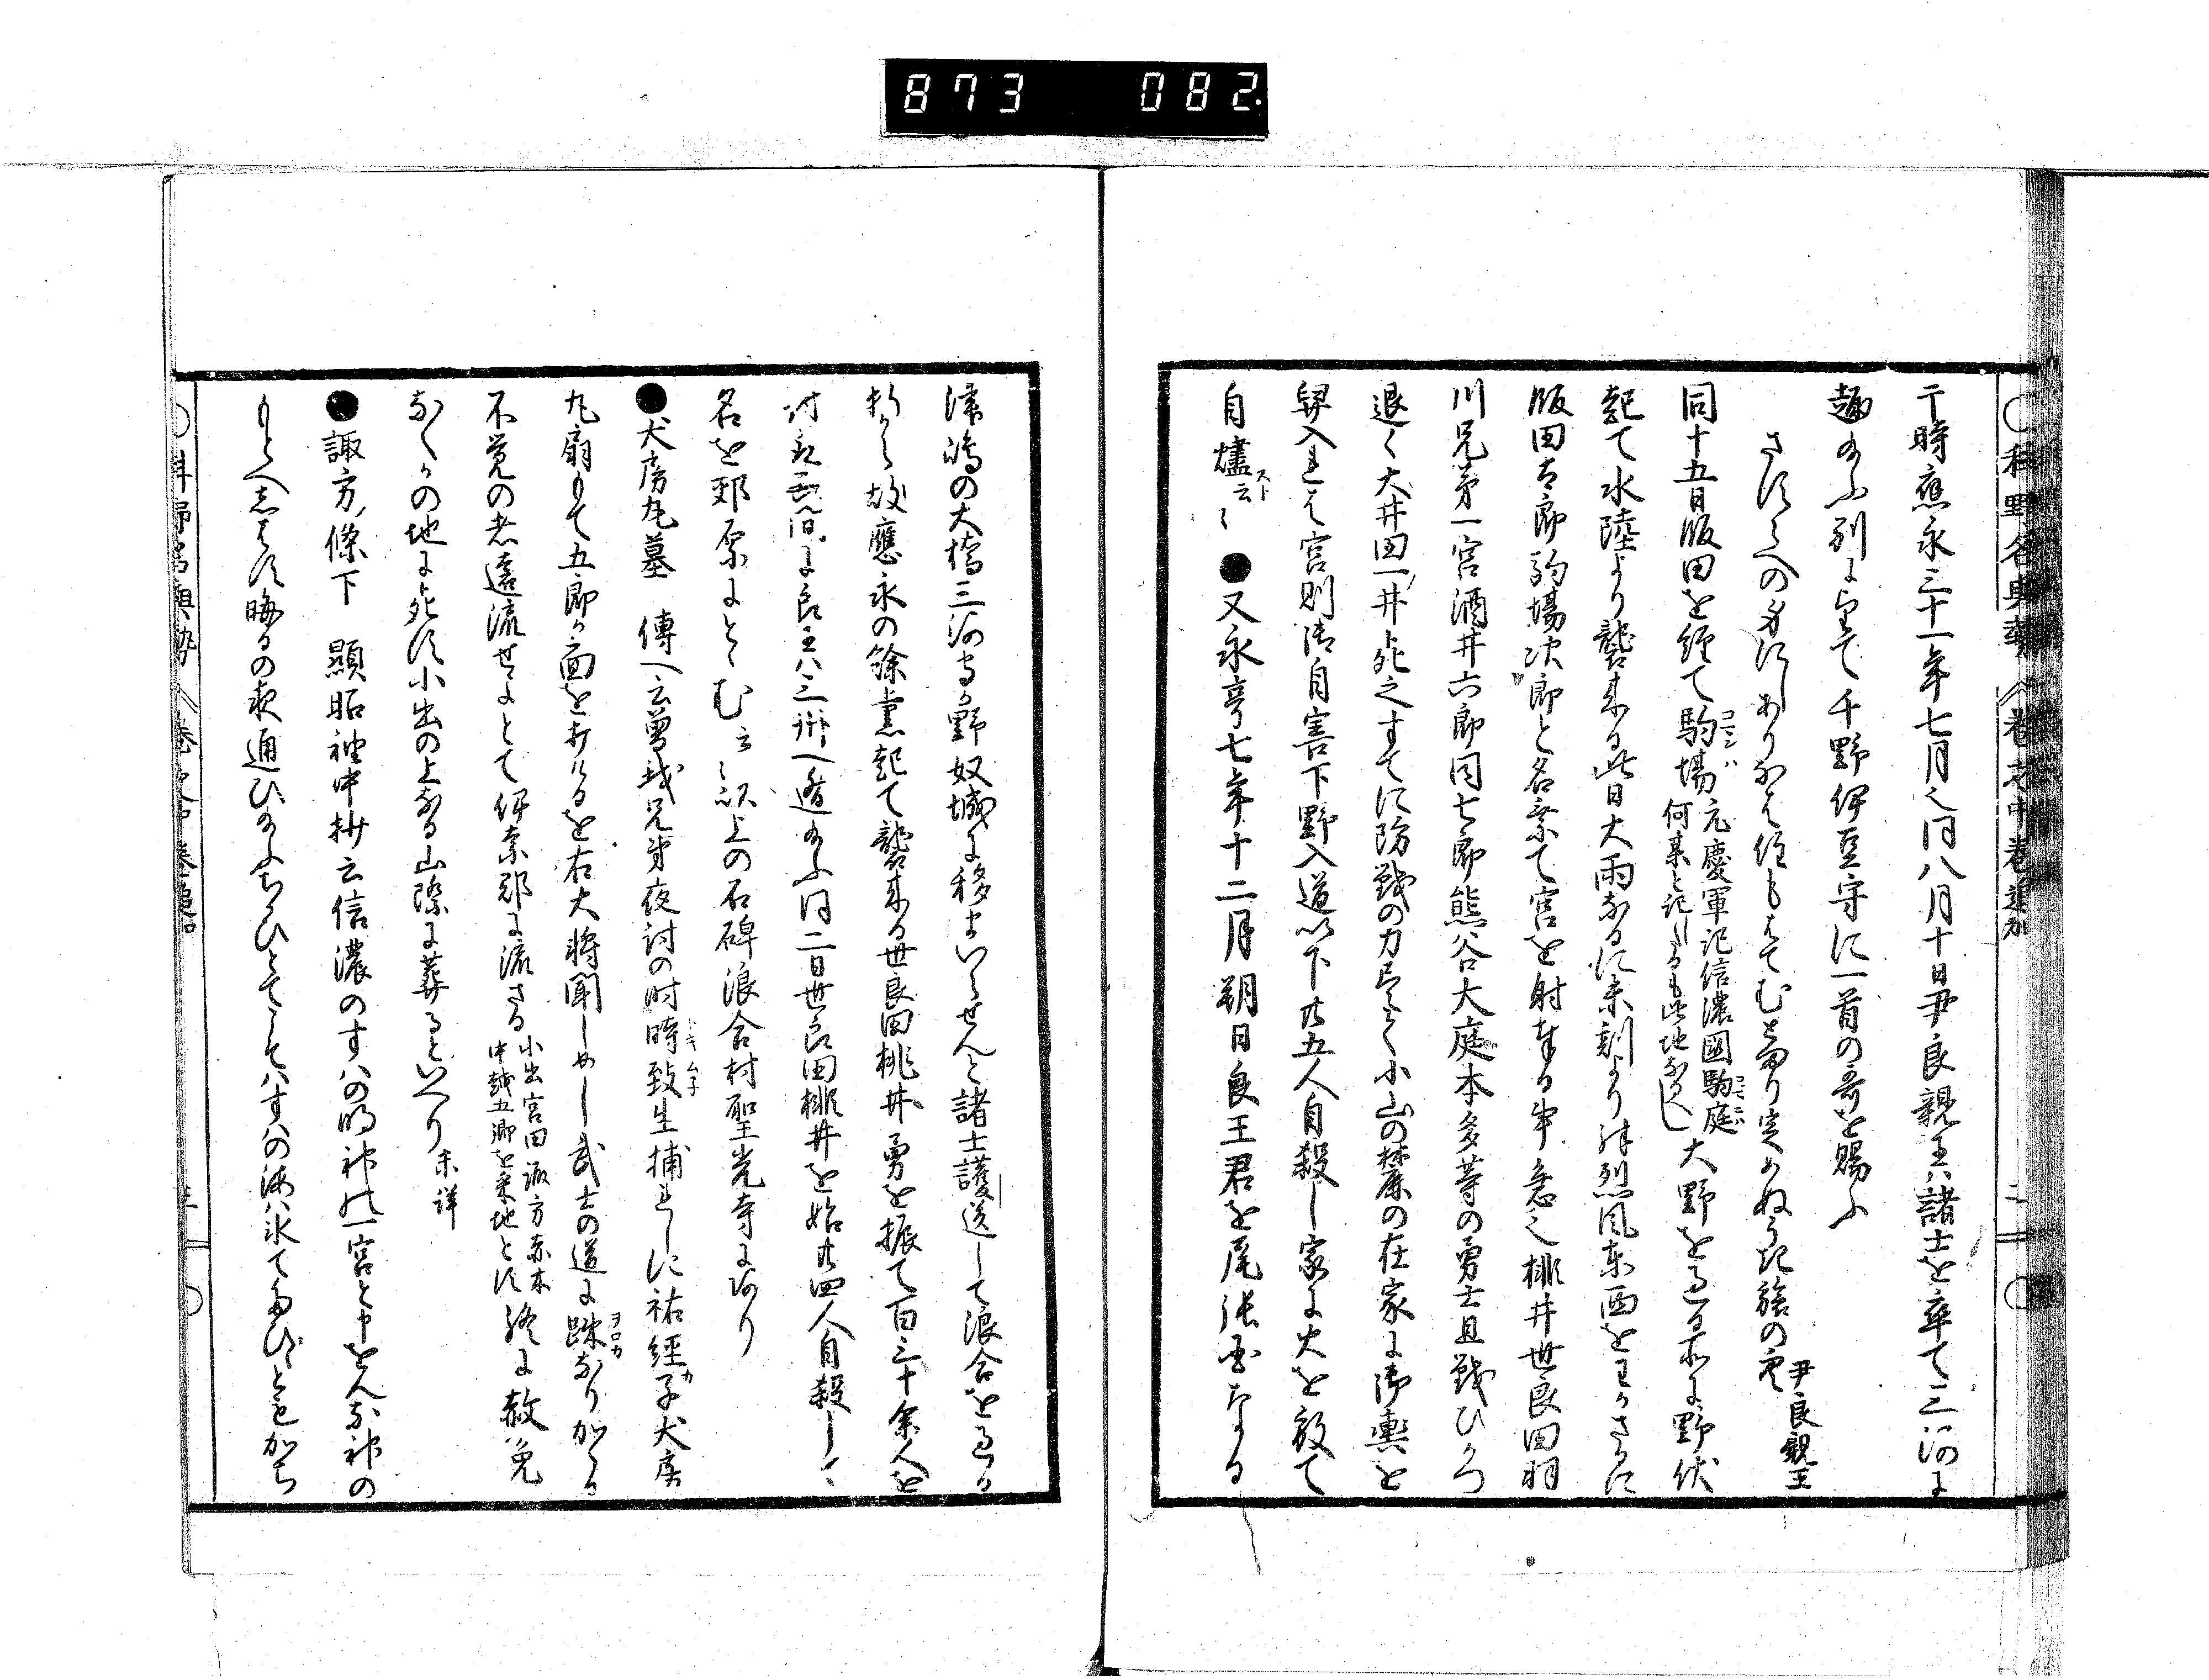 873 082.
于時應永三十一年七月之同八月十日尹良親王ハ諸士を卒て三河に
趣給ふ別に望て千野伊豆守に一首の哥を賜ふ
さすらへの身にしありなは住もはてむとまり定めぬうき旅の空 尹良親王
同十五日阪田を經て駒場 元慶軍記信濃國駒庭何某と記しあるも此地なるへし 大野を過る所に野伏
起て水陸より襲来る此日大雨なるに未刻より絆烈風東西をわかさるに
阪田太郎駒場次郎と名乗て宮を射奉る事急之桃井世良田羽
川兄弟一宮酒井六郎同七郎熊谷大庭本多等の勇士且戰ひかつ
退く大井田一井死之すてに防戰の力尽く小山の麓の在家に御輿を
舁入れは宮則御自害下野入道以下廿五人自殺し家に火を放て
自燼云〻 ●又永享七年十二月朔日良王君を尾張国なる
津島の大橋三河守か野奴城に移まいらせんと諸士護送して浪合を過る
折から故應永の餘黨起て襲来る世良田桃井勇を振て百三十余人を
討取此間に良王ハ三州へ遁給ふ同二日世良田桃井を始廿四人自殺し
名を郡原にとゝむ云〻以上の石碑浪合村聖光寺にあり
●犬房丸墓 傳へ云曽我兄弟夜討の时時致生捕れしに祐經か子犬房
丸扇もて五郎か面を打けるを右大將聞しめし武士の道に踈なりかゝる
不覚の者遠流せよとて伊奈郡に流さる 小出宮田諏方赤木中越五郷を采地とす 終に赦免
なくかの地に死す小出の上なる山際に葬るといへり未詳
●諏方條下 顕昭袖中抄云信濃のすハの明神は一宮と申をんな神の
もとへしはす晦るの夜通ひ給ふちかひとてこそハすハの海ハ氷てたびゝともかち